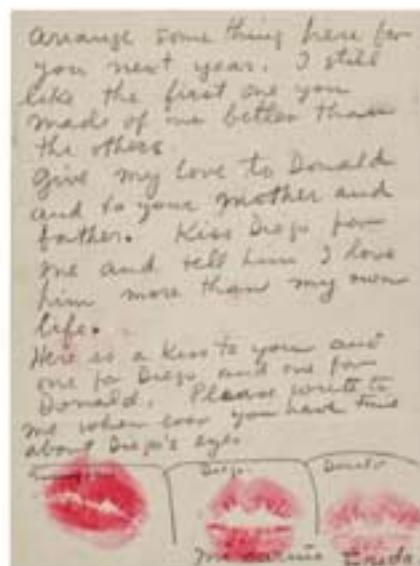 arrange some thing here for
you next year. I still
like the first one you
made of me better than
the others.
Give my love to Donald
and to your mother and
father. Kiss Diego for
me and tell him I love
him more than my own
life.
Here is a kiss to you and
one for Diego and one for
Donald. Please write to
me when ever you have time
about Diego's eye.
Diego Donald
Mi cariño Frida